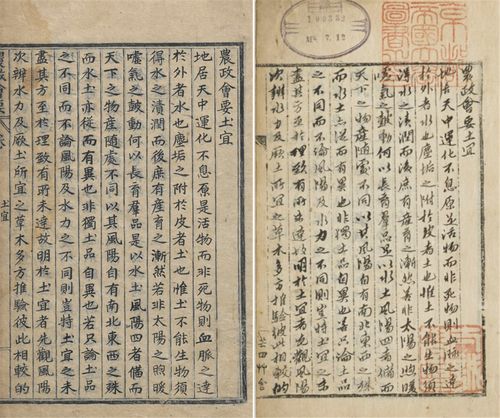 農政會要土宜
地居天中運化不息原是活物而非死物則血脈之達
於外者水也塵垢之附於皮者土也惟土不能生物須
得水之漬潤而後庶有産育之漸然若非太陽之煦暖
噓氣之皷動何以長育羣品是以水土風陽四者備而
天下之物産隨處不同以其風陽自有南北東西之殊
而水土亦從而有異也非獨土品自異也若只論土品
之不同而不論風陽及水力之不同則豈特土宜之未
盡其方至於理致有所未達故明於土宜者先觀風陽
次辨水力及厥土所宜之草木多方推驗彼此相較的
土宜
農政會要土宜
地居天中運化不息原是活物而非死物則血脉之達
於外者水也塵垢之附於皮者土也惟土不能生物須
得水之漬潤而後庶有産育之漸然若非太陽之煦暖
噓氣之皷動何以長育羣品是以水土風陽四者備而
天下之物産隨處不同以其風陽自有南北東西之殊
而水土亦從而有異也非獨土品自異也若只論土品
之不同而不論風陽及水力之不同則豈特土宜之未
盡其方至於理致有所未達故明於土宜者先觀風陽
次辨水力及厥土所宜之草木多方推驗彼此相較的